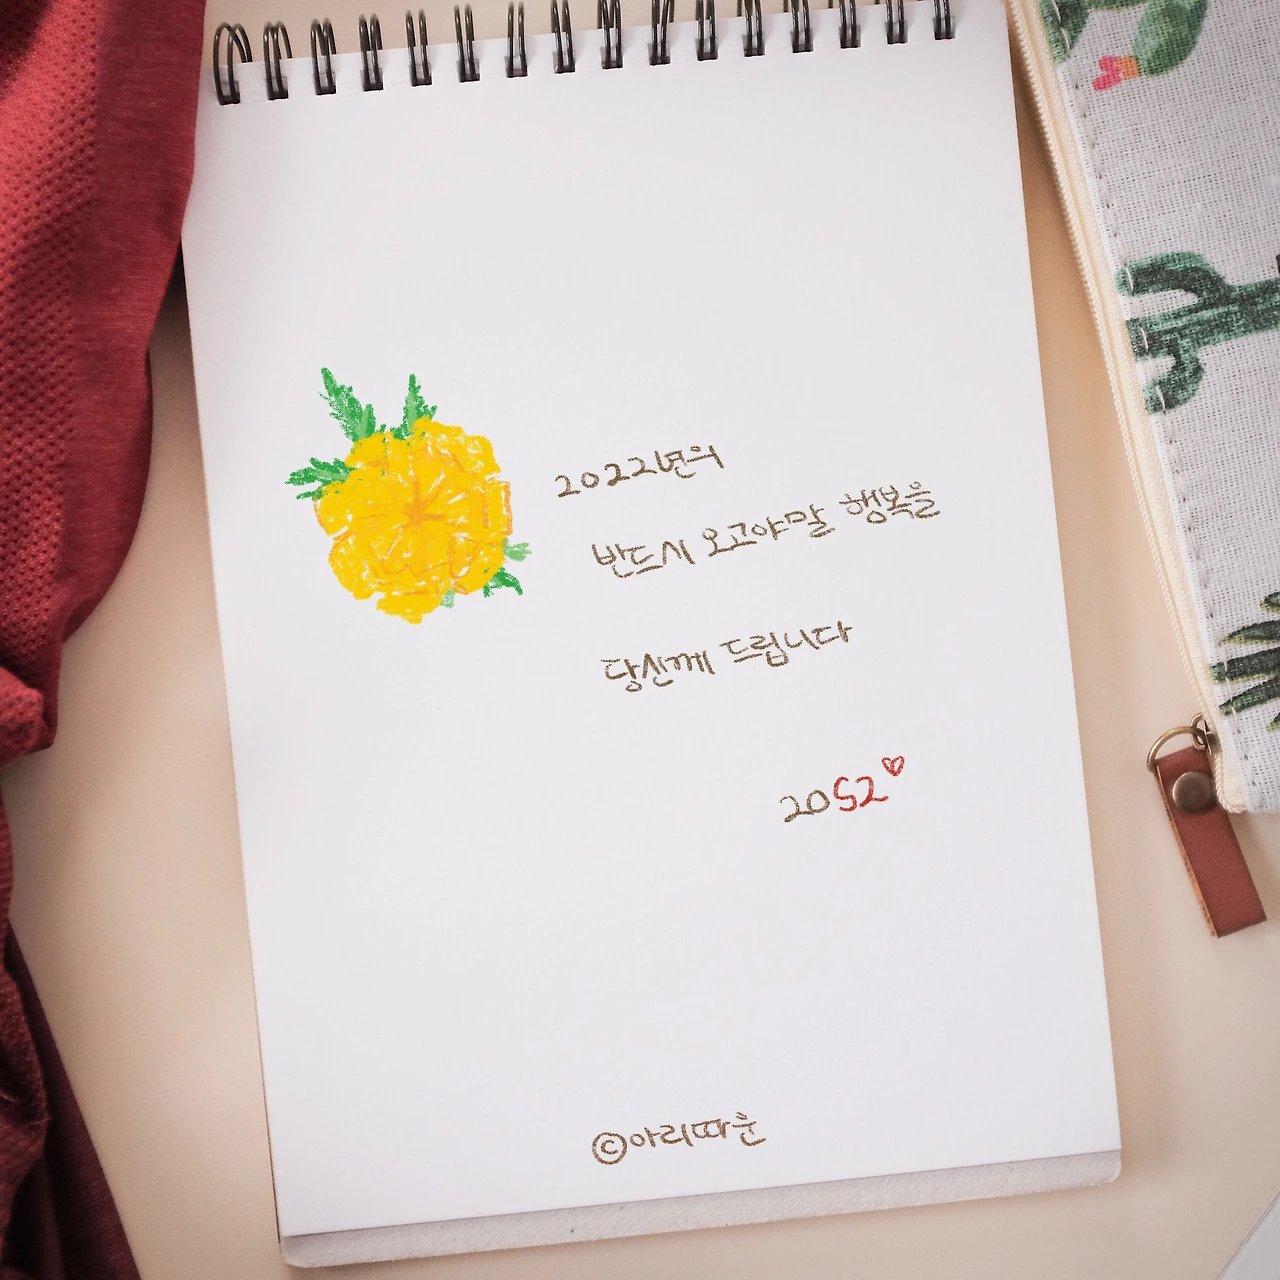 2022년의
반드시 오고야말 행복을
당신께 드립니다
20S2♡
©아리따운